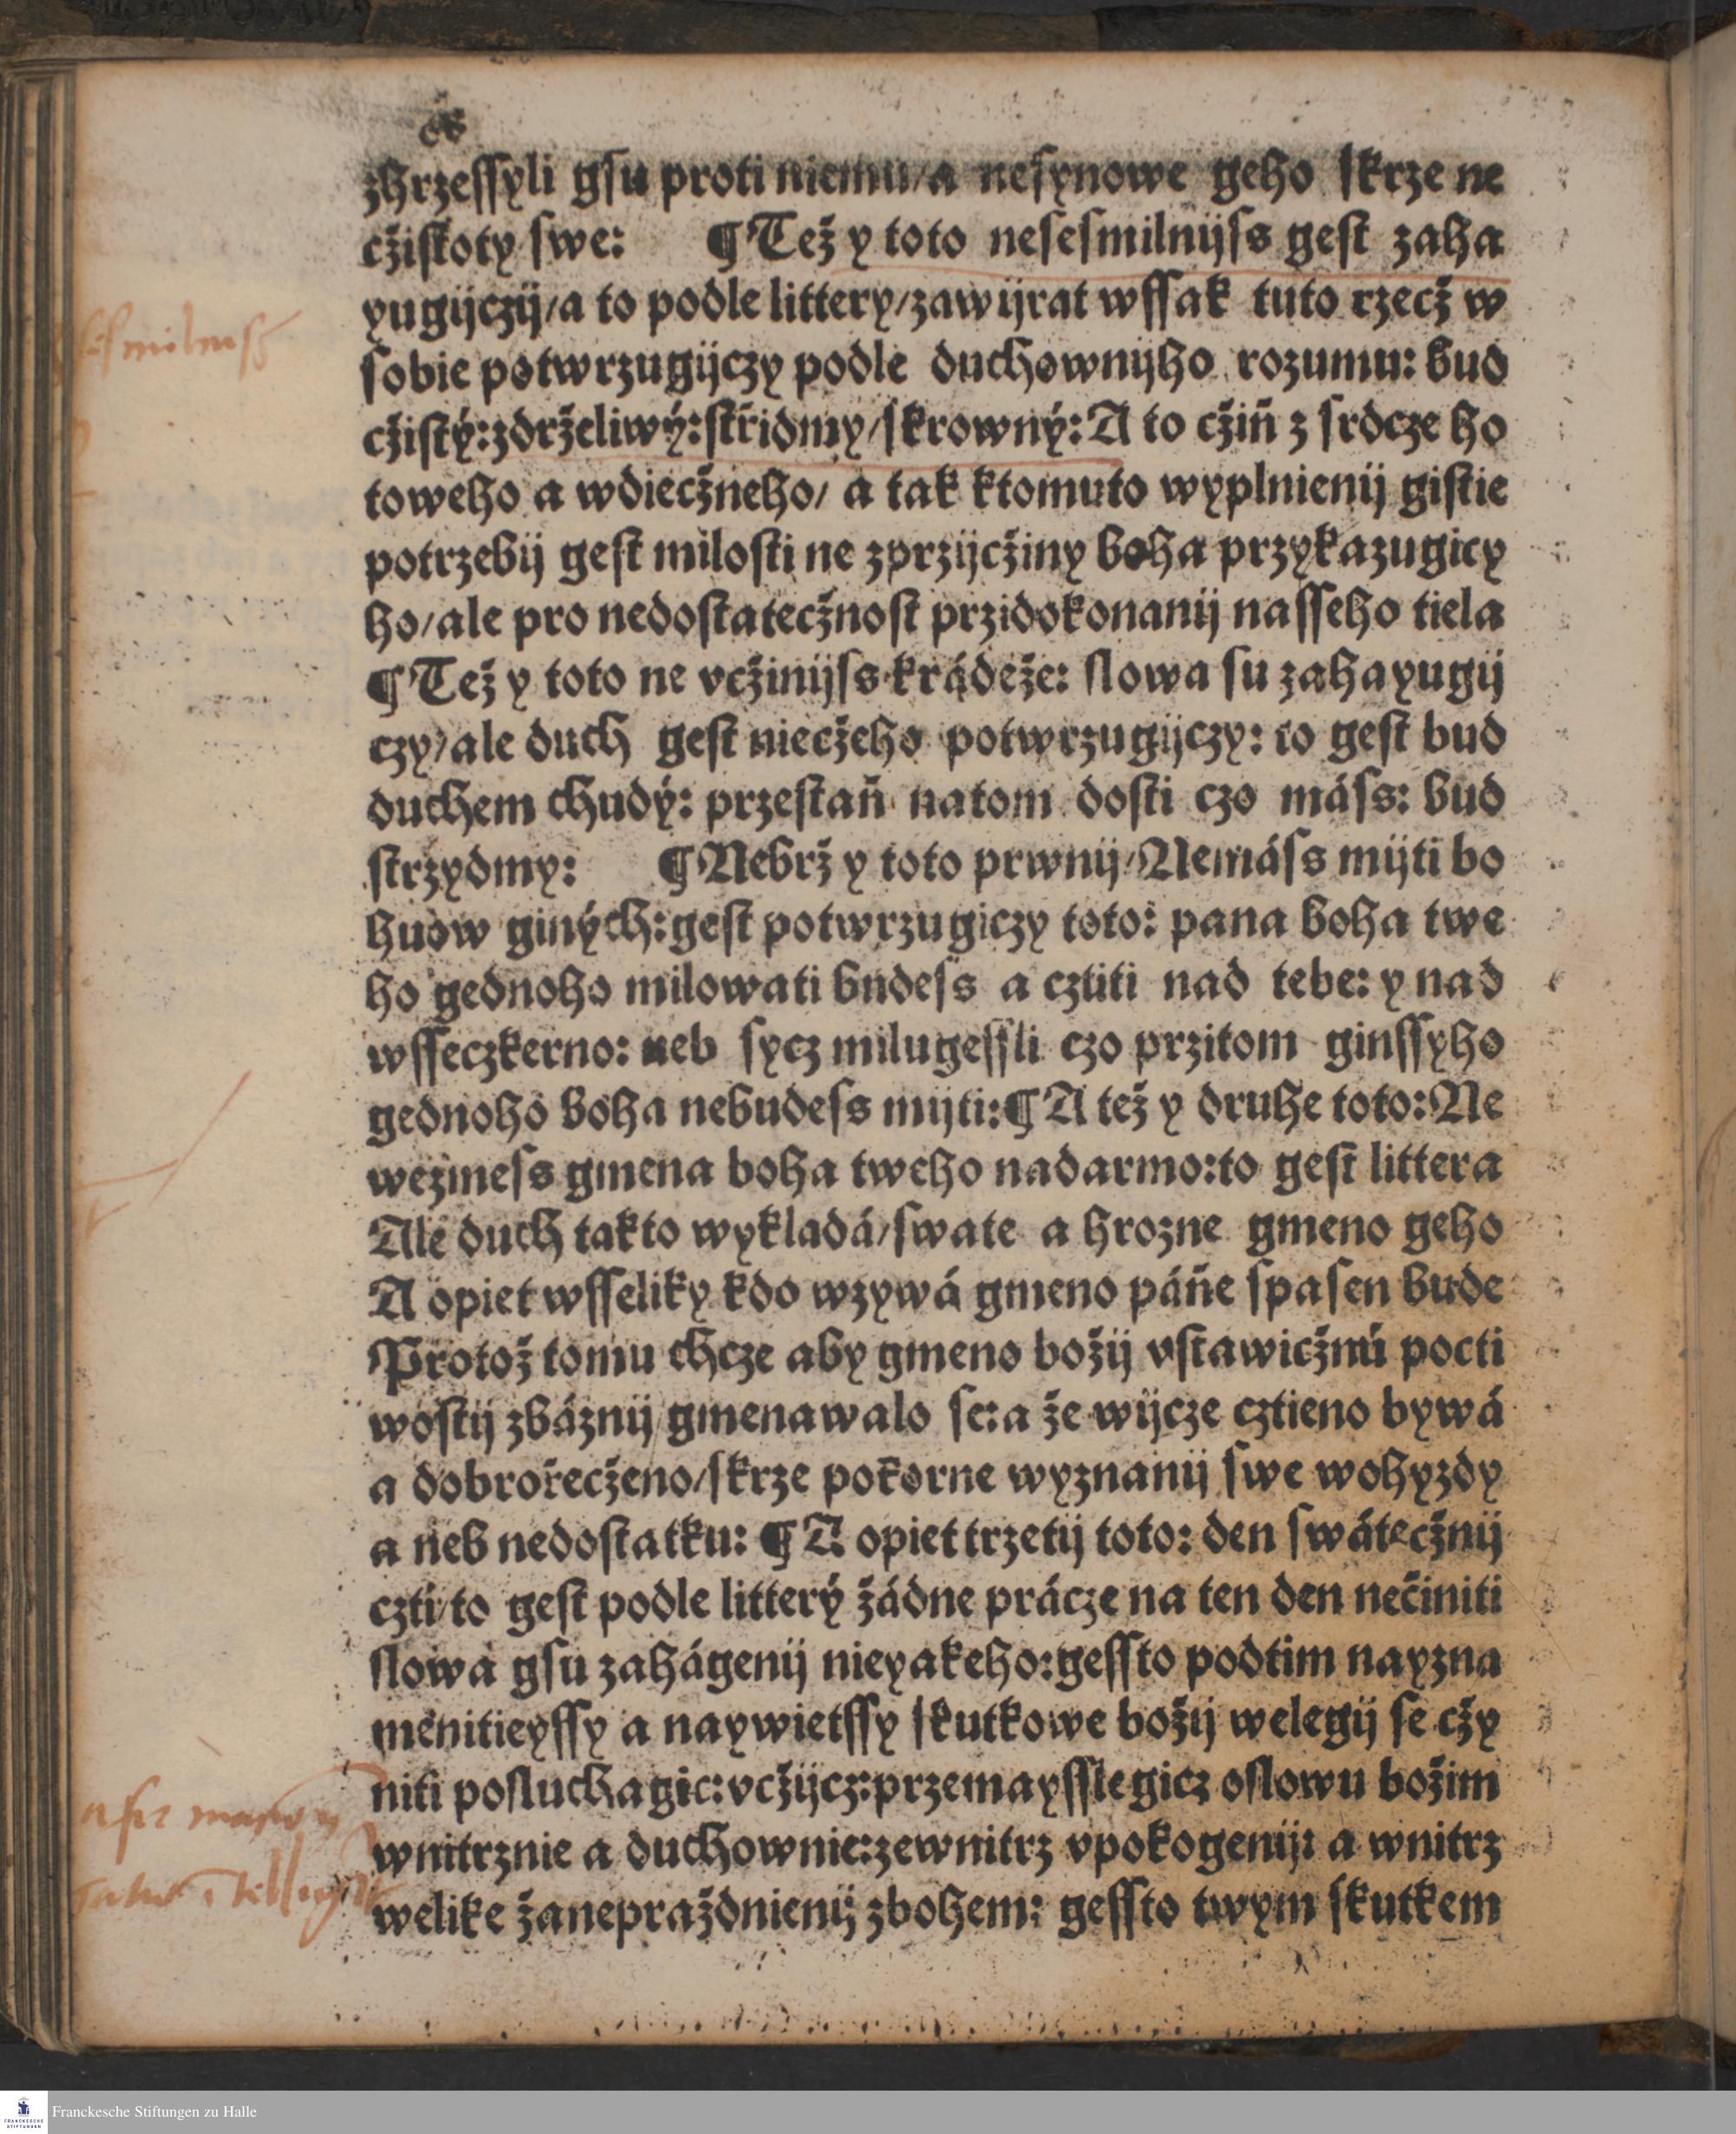 zhrzeſſyli gſu proti niemu/a neſynowe geho ſkrze ne
cžiſtoty ſwe: ¶Tež y toto neſeſmilnijſs geſt zaha
yugijczij/a to podle littery/zawijrat wſſak tuto rzecž w
ſobie potwrzugijczy podle duchownijho rozumu: bud
cžiſtý:zdrželiwý:ſtřidmy/ſkrowný: A to cžiň z ſrdcze ho
toweho a wdiecžneho/ a tak ktomuto wyplnienij giſtie
potrzebij geſt miloſti ne zprzijcžiny boha przykazugicy
ho/ale pro nedoſtatecžnoſt przidokonanij naſſeho tiela
¶Tež y toto ne vcžinijſs krádeže: ſlowa ſu zahayugij
czy/ale duch geſt niecžeho potwrzugijczy: to geſt bud
duchem chudý: przeſtaň natom doſti czo máſs: bud
ſtrzydmy: ¶Nebrž y toto prwnij/Nemáſs mijti bo
huow giných:geſt potwrzugiczy toto: pana boha twe
ho gednoho milowati bndeſs a cztiti nad tebe: y nad
wſſeczkerno: neb ſycz milugeſſli czo przitom ginſſyho
gednoho boha nebudeſs mijti:¶A tež y druhe toto:Ne
wezmeſs gmena boha tweho nadarmo:to geſt littera
Ale duch takto wykladá/ſwate a hrozne gmeno geho
A opiet wſſeliky kdo wzywá gmeno páňe ſpaſen bude
Protož tomu chcze aby gmeno božij vſtawicžnú pocti
woſtij zbáznij gmenawalo ſe:a že wijcze cztieno bywá
a dobrořecženo/ſkrze pokorne wyznanij ſwe wohyzdy
a neb nedoſtatku: ¶A opiet trzetij toto: den ſwátecžnij
czti/to geſt podle litterý žádne prácze na ten den nečiniti
ſlowa gſu zahágenij nieyakeho:geſſto podtim nayzna
menitieyſſy a naywietſſy ſkutkowe božij welegij ſe cžy
niti poſluchagic:vcžijcz:przemayſſlegicz oſlowu božim
wnitrznie a duchownie:zewnitrz vpokogenij: a wnitrz
welike žaneprażdnienij zbohem: geſſto twym ſkutkem
Franckesche Stiftungen zu Halle